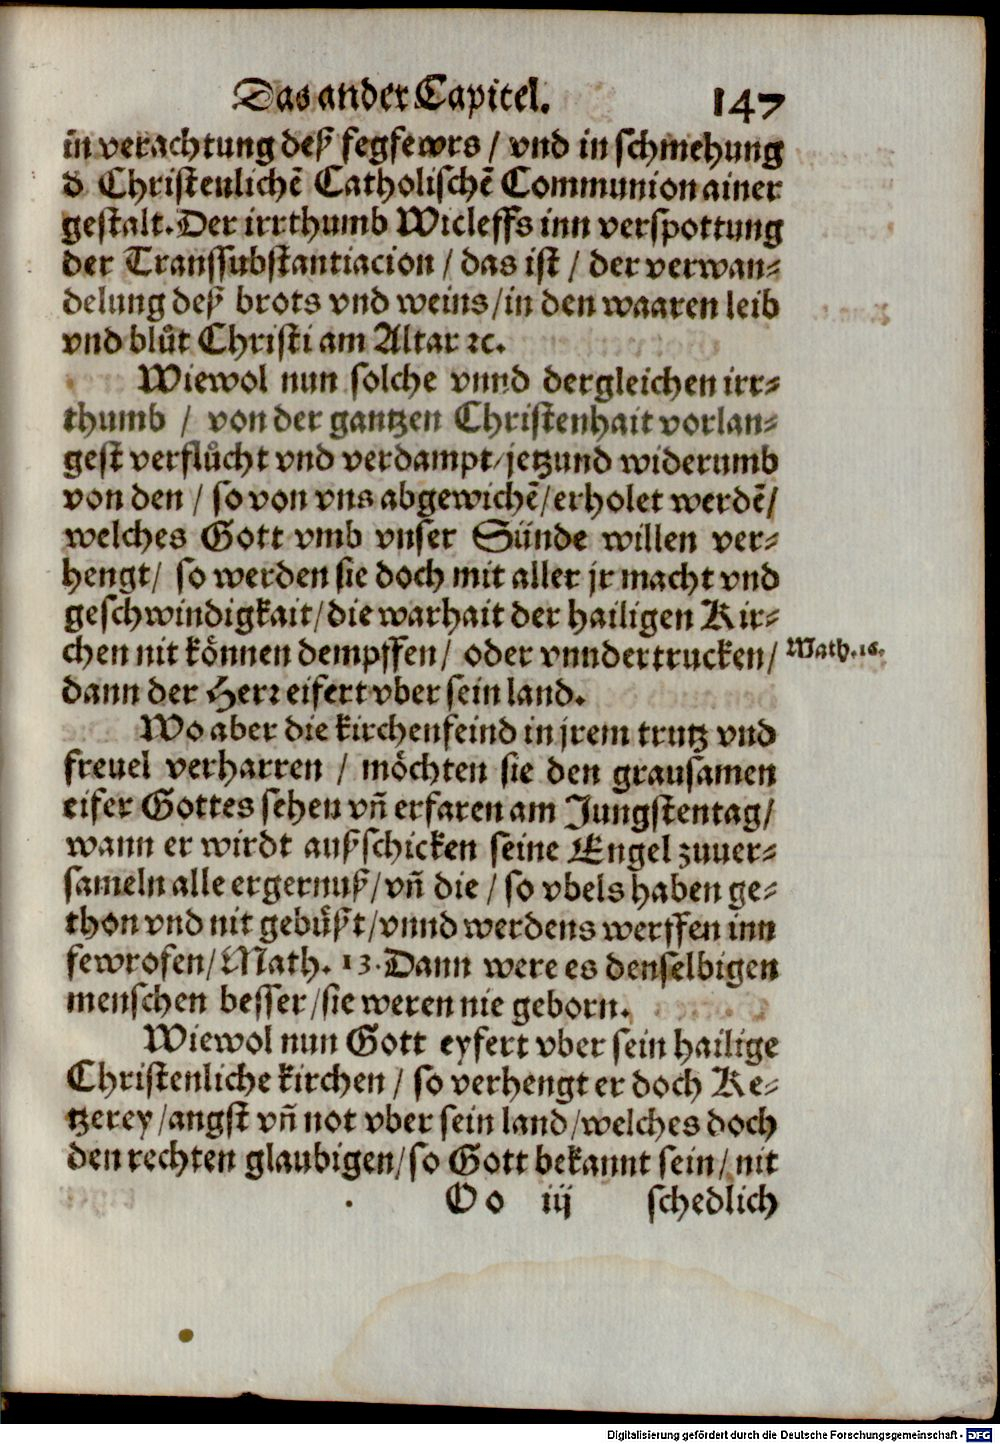 Das ander Capitel. 147
in verachtung deß fegfewrs / vnd in schmehung
d Christenlichẽ Catholischẽ Communion ainer
gestalt. Der irrthumb Wicleffs inn verspottung
der Transsubstantiacion / das ist / der verwan-
delung deß brots vnd weins / in den waaren leib
vnd blůt Christi am Altar ꝛc.
Wiewol nun solche vnnd dergleichen irr-
thumb / von der gantzen Christenhait vorlan-
gest verflůcht vnd verdampt / jetzund widerumb
von den / so von vns abgewichẽ / erholet werdẽ /
welches Gott vmb vnser Sünde willen ver-
hengt / so werden sie doch mit aller jr macht vnd
geschwindigkait / die warhait der hailigen Kir-
chen nit können dempffen / oder vnndertrucken / Math. 16.
dann der Herr eifert vber sein land.
Wo aber die kirchenfeind in jrem trutz vnd
freuel verharren / möchten sie den grausamen
eifer Gottes sehen vñ erfaren am Jungstentag /
wann er wirdt außschicken seine Engel zuuer-
sameln alle ergernuß / vñ die / so vbels haben ge-
thon vnd nit gebüßt / vnnd werdens werffen inn
fewrofen / Math. 13. Dann were es denselbigen
menschen besser / sie weren nie geborn.
Wiewol nun Gott eyfert vber sein hailige
Christenliche kirchen / so verhengt er doch Ke-
tzerey / angst vñ not vber sein land / welches doch
den rechten glaubigen / so Gott bekannt sein / nit
O o iij schedlich
Digitalisierung gefördert durch die Deutsche Forschungsgemeinschaft - DFG